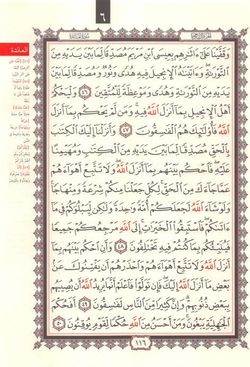 ٦
المائدة
وَقَفَّيْنَا عَلَىٰ ءَاثَٰرِهِم بِعِيسَى ٱبْنِ مَرْيَمَ مُصَدِّقًا لِّمَا بَيْنَ يَدَيْهِ مِنَ
ٱلتَّوْرَىٰةِ وَءَاتَيْنَٰهُ ٱلْإِنجِيلَ فِيهِ هُدًى وَنُورٌ وَمُصَدِّقًا لِّمَا بَيْنَ
يَدَيْهِ مِنَ ٱلتَّوْرَىٰةِ وَهُدًى وَمَوْعِظَةً لِّلْمُتَّقِينَ ٤٦ وَلْيَحْكُمْ
أَهْلُ ٱلْإِنجِيلِ بِمَآ أَنزَلَ ٱللَّهُ فِيهِ وَمَن لَّمْ يَحْكُم بِمَآ أَنزَلَ
ٱللَّهُ فَأُو۟لَٰٓئِكَ هُمُ ٱلْفَٰسِقُونَ ٤٧ وَأَنزَلْنَآ إِلَيْكَ ٱلْكِتَٰبَ
بِٱلْحَقِّ مُصَدِّقًا لِّمَا بَيْنَ يَدَيْهِ مِنَ ٱلْكِتَٰبِ وَمُهَيْمِنًا
عَلَيْهِ فَٱحْكُم بَيْنَهُم بِمَآ أَنزَلَ ٱللَّهُ وَلَا تَتَّبِعْ أَهْوَآءَهُمْ
عَمَّا جَآءَكَ مِنَ ٱلْحَقِّ لِكُلٍّ جَعَلْنَا مِنكُمْ شِرْعَةً وَمِنْهَاجًا
وَلَوْ شَآءَ ٱللَّهُ لَجَعَلَكُمْ أُمَّةً وَٰحِدَةً وَلَٰكِن لِّيَبْلُوَكُمْ فِى مَآ
ءَاتَىٰكُمْ فَٱسْتَبِقُوا۟ ٱلْخَيْرَٰتِ إِلَى ٱللَّهِ مَرْجِعُكُمْ جَمِيعًا
فَيُنَبِّئُكُم بِمَا كُنتُمْ فِيهِ تَخْتَلِفُونَ ٤٨ وَأَنِ ٱحْكُم بَيْنَهُم بِمَآ
أَنزَلَ ٱللَّهُ وَلَا تَتَّبِعْ أَهْوَآءَهُمْ وَٱحْذَرْهُمْ أَن يَفْتِنُوكَ عَنۢ
بَعْضِ مَآ أَنزَلَ ٱللَّهُ إِلَيْكَ فَإِن تَوَلَّوْا۟ فَٱعْلَمْ أَنَّمَا يُرِيدُ ٱللَّهُ أَن يُصِيبَهُم
بِبَعْضِ ذُنُوبِهِمْ وَإِنَّ كَثِيرًا مِّنَ ٱلنَّاسِ لَفَٰسِقُونَ ٤٩ أَفَحُكْمَ
ٱلْجَٰهِلِيَّةِ يَبْغُونَ وَمَنْ أَحْسَنُ مِنَ ٱللَّهِ حُكْمًا لِّقَوْمٍ يُوقِنُونَ ٥٠
١١٦